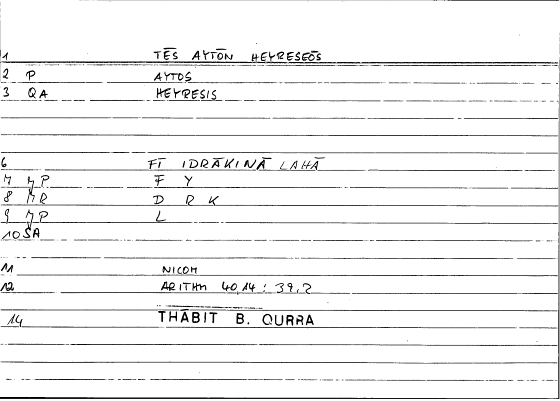 1 TĒS AYTŌN HEYRESEŌS
2 P AYTOS
3 QA HEYRESIS
6 FĪ IDRĀKINĀ LAHĀ
7 P F Y
8 D R K
9 P L
10 ŠA
11 NICOM
12 ARITHM 40,14 : 39,2
14 THĀBIT B. QURRA